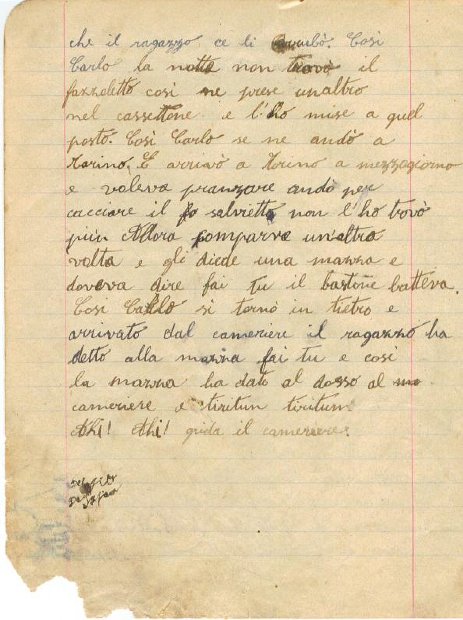 che il ragazzo ce li rubò. Così
Carlo la notte non trovò il
fazzoletto così ne prese un'altro
nel cassettone e l'ho mise a quel
posto. Così Carlo se ne andò a
Torino. E arrivò a Torino a mezzogiorno
e voleva pranzare andò per
cacciare il salvietto non l'ho trovò
più Allora comparve un'altra
volta e gli diede una mazza e
doveva dire fai tu il bastone batteva.
Così Carlo si tornò in tietro e
arrivato dal cameriere il ragazzo ha
detto alla mazza fai tu e così
la mazza ha dato al dosso al
cameriere e tiritun tiritun
Ahi! Ahi! grida il cameriere.